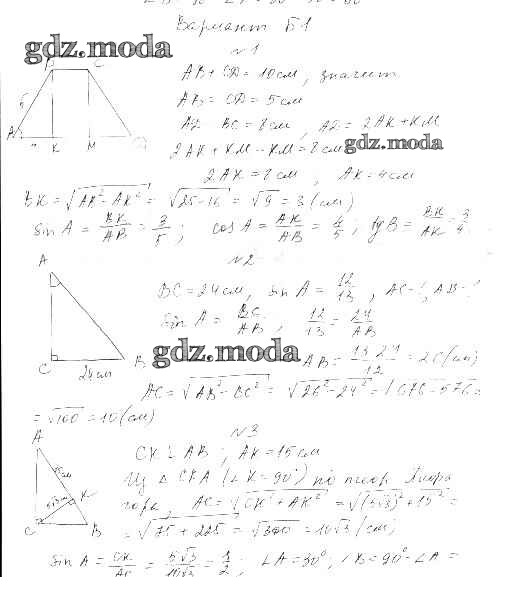 Вариант Б1
gdz.moda
№1
B C
AB + CD = 10 см, значит
AB = CD = 5 см
5
AD BC = 8 см, AD = 2AK + KM
A K M D
gdz.moda
2AK + KM - KM = 8 см
2AK = 8 см, AK = 4 см
BK = √AB² - AK² = √25 - 16 = √9 = 3 (см)
sin A = BK/AB = 3/5; cos A = AK/AB = 4/5; tg B = BK/AK = 3/4
№2
A
BC = 24 см, sin A = 12/13, AC - ?, AB - ?
sin A = BC/AB, 12/13 = 24/AB
gdz.moda
C 24 см B
AB = 13·24/12 = 26 (см)
AC = √AB² - BC² = √26² - 24² = √676 - 576 =
= √100 = 10 (см)
№3
A
CK ⊥ AB; AK = 15 см
15 см
Из △ CKA (∠K = 90°) по теор. Пифа
5√3 см K
гора, AC = √CK² + AK² = √(5√3)² + 15² =
C B
= √75 + 225 = √300 = 10√3 (см)
sin A = CK/AC = 5√3/10√3 = 1/2; ∠A = 30°, ∠B = 90° - ∠A =